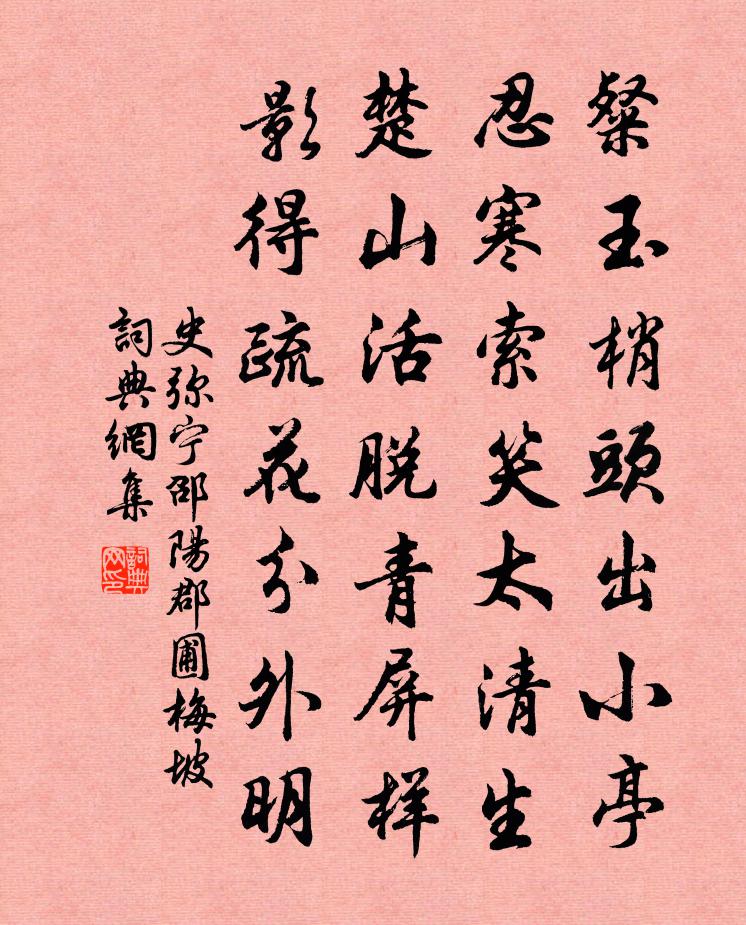 粲玉梢頭出小亭
忍寒索笑太清生
楚山活脫青屏様
影得疏花分外明
史弥宁邵陽郡圃梅坡
詞典網集
詞典網印